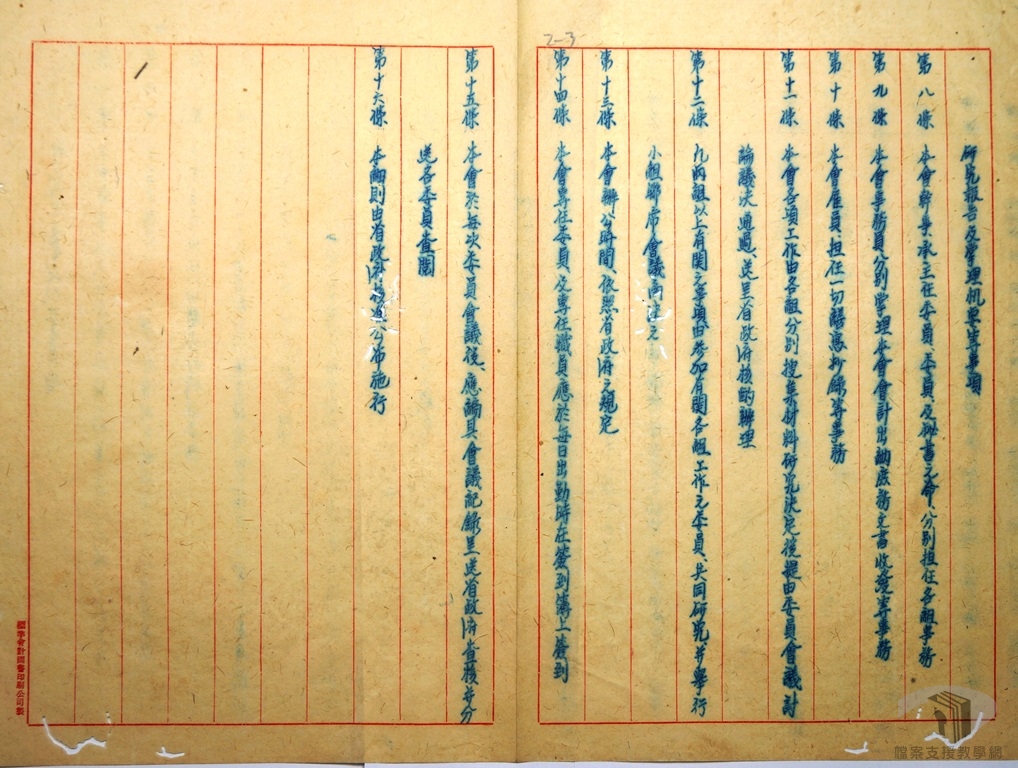 2-3
研究報告及掌理机要等事項
第八條 本會幹事承主任委員、委員及秘書之命、分别担任各組事務
第九條 本會事務員分别掌理本會會計出納庶務文書收發等事務
第十條 本會雇員担任一切繕寫抄錄等事務
第十一條 本會各項工作由各組分别搜集材料研究決定後提由委員會議討
論議決通過、送呈省政府核酌辦理
第十二條 凡兩組以上有関之事項由參加有関各組工作之委員、共同研究并舉行
小組聯席會議商
第十三條 本會辦公時間、依照省政府之規定
第十四條 本會專任委員及專任職員應於每日出勤時在簽到簿上簽到
第十五條 本會於每次委員會議後、應編具會議記錄呈送省政府查核并分
送各委員查閱
第十六條 本細則由省政府核准公布施行
標準會計圖書印刷公司製
檔案支援教學網